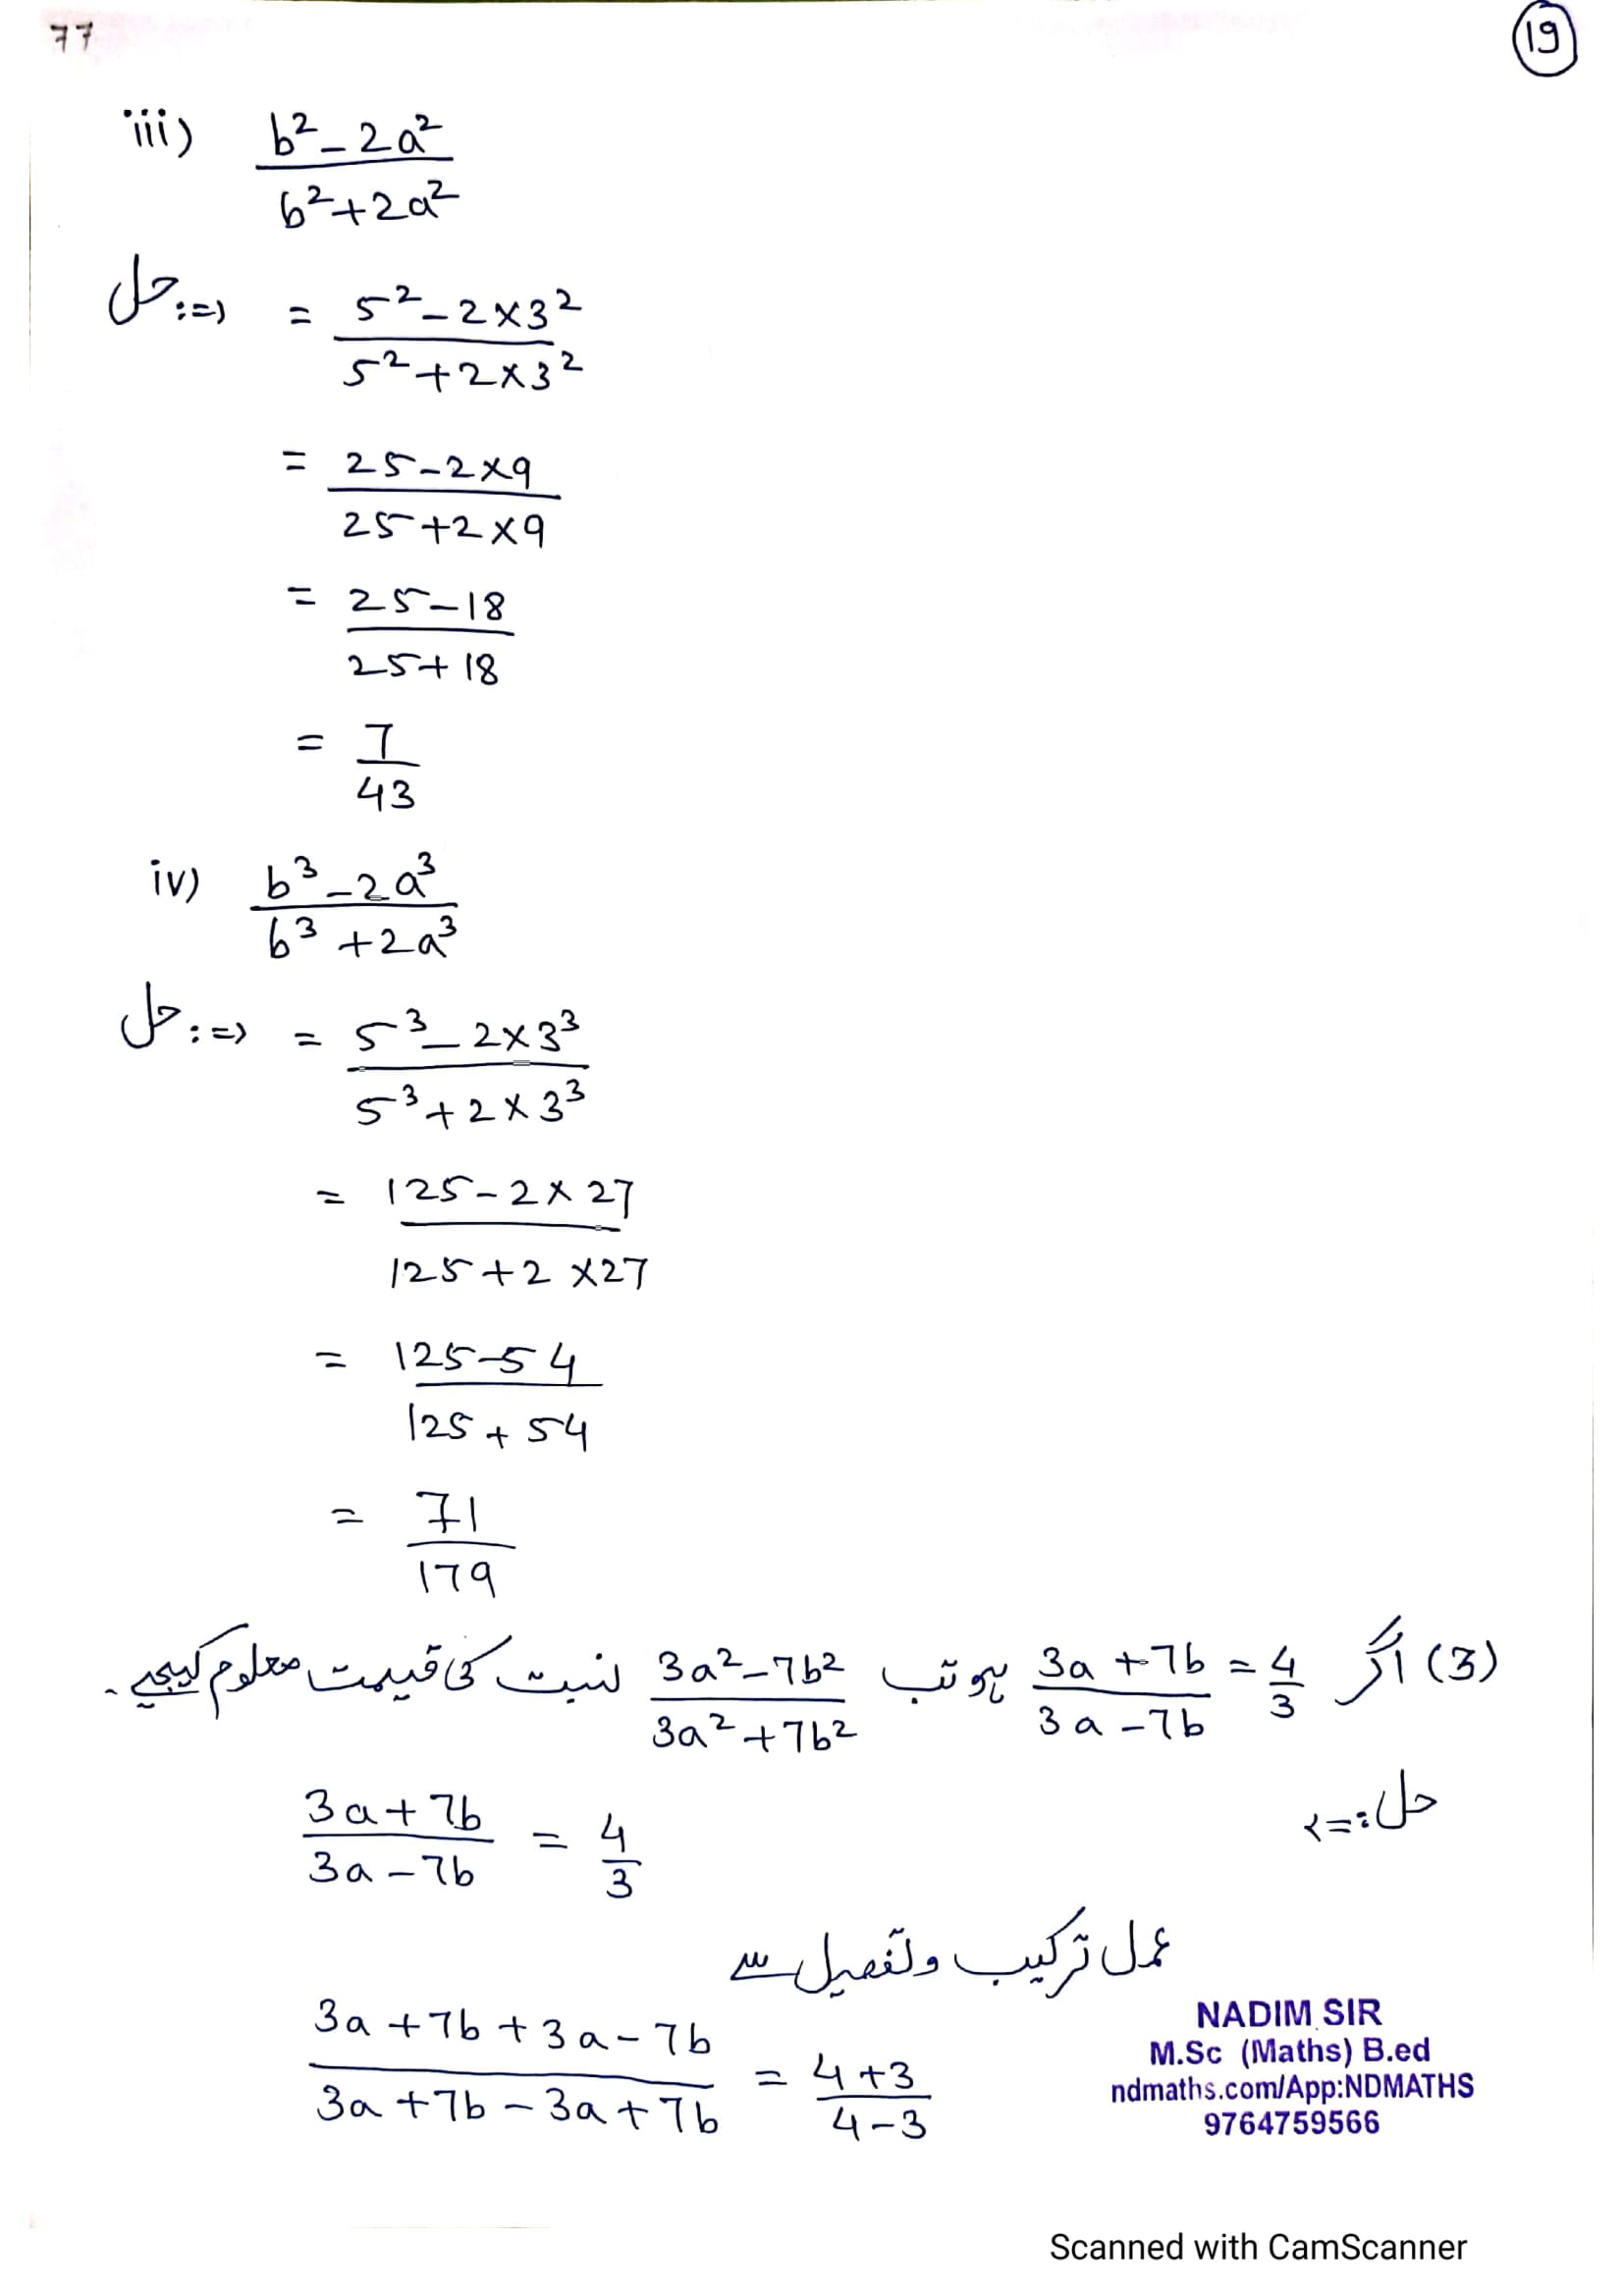 77
19
iii) (b² - 2a²)/(b² + 2a²)
حل :=> = (5² - 2×3²)/(5² + 2×3²)
= (25 - 2×9)/(25 + 2×9)
= (25 - 18)/(25 + 18)
= 7/43
iv) (b³ - 2a³)/(b³ + 2a³)
حل :=> = (5³ - 2×3³)/(5³ + 2×3³)
= (125 - 2×27)/(125 + 2×27)
= (125 - 54)/(125 + 54)
= 71/179
(3) اگر (3a + 7b)/(3a - 7b) = 4/3 ہو تب (3a² - 7b²)/(3a² + 7b²) نسبت کی قیمت معلوم کیجیے۔
حل :=>
(3a + 7b)/(3a - 7b) = 4/3
عمل ترکیب و تفصیل سے
(3a + 7b + 3a - 7b)/(3a + 7b - 3a + 7b) = (4 + 3)/(4 - 3)
NADIM SIR
M.Sc (Maths) B.ed
ndmaths.com/App:NDMATHS
9764759566
Scanned with CamScanner